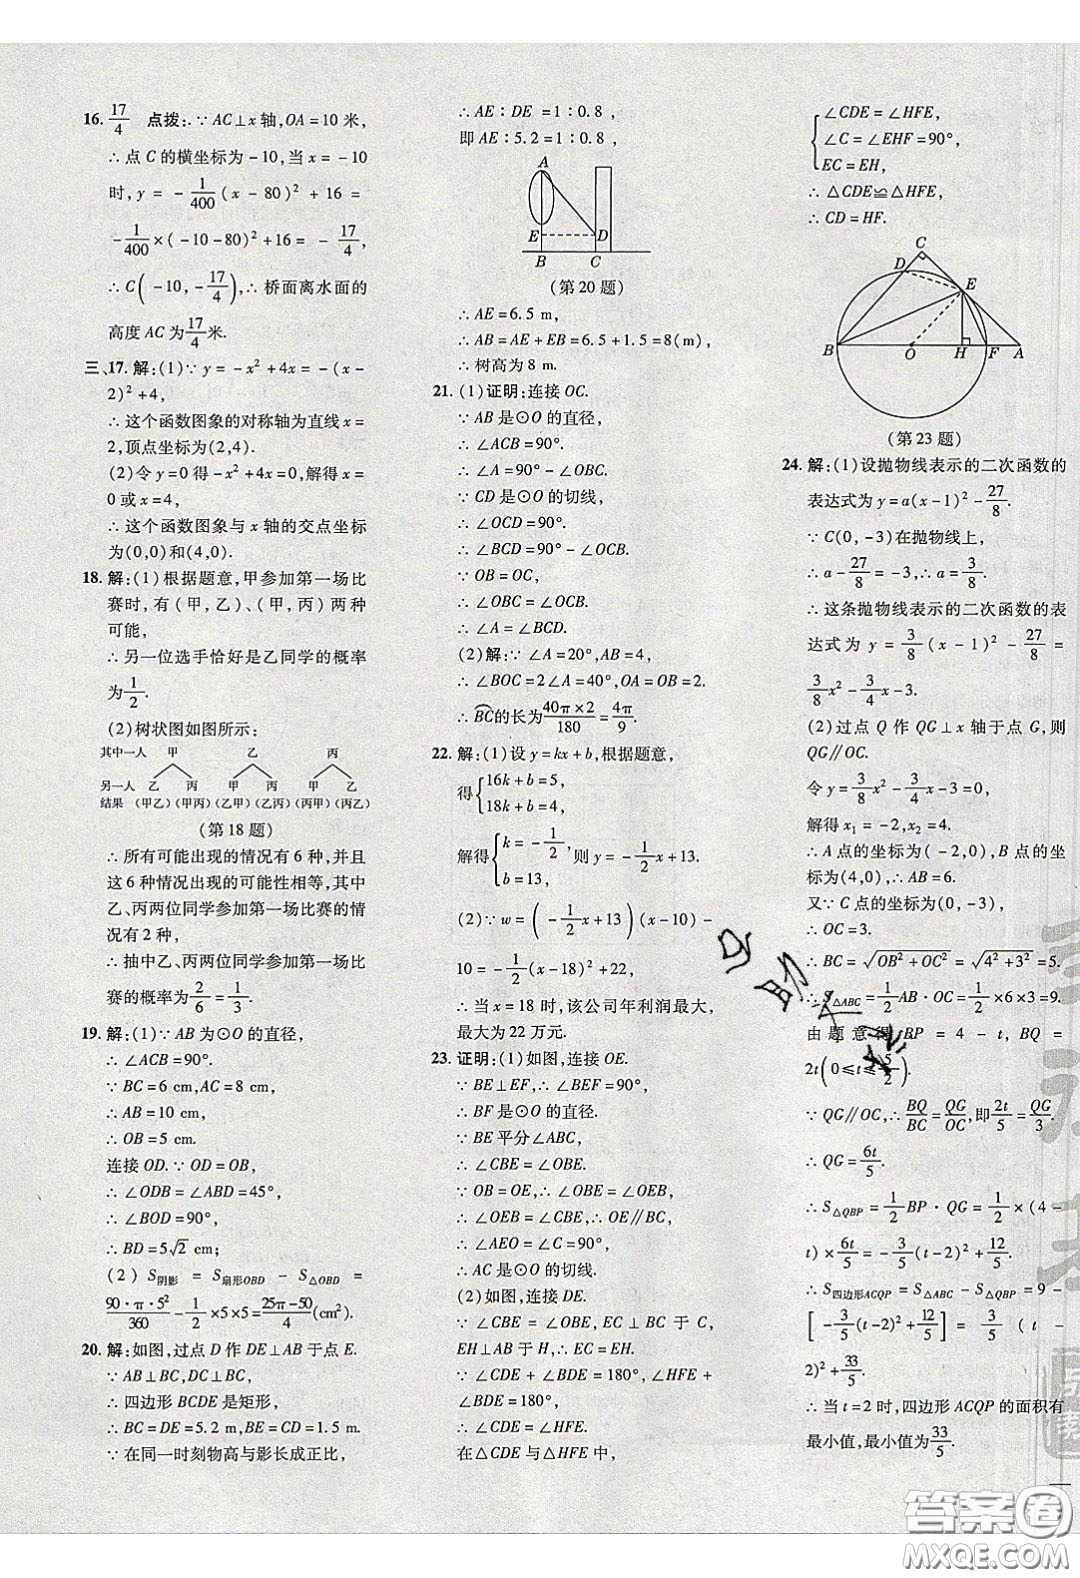 16. 17/4 点拨:∵AC⊥x 轴,OA=10 米,
∴点 C 的横坐标为-10,当 x=-10
时,y=-1/400(x-80)²+16=
-1/400×(-10-80)²+16=-17/4,
∴C(-10,-17/4),∴桥面离水面的
高度 AC 为17/4米.
三、17. 解:(1)∵y=-x²+4x=-(x-
2)²+4,
∴这个函数图象的对称轴为直线 x=
2,顶点坐标为(2,4).
(2)令 y=0 得-x²+4x=0,解得 x=
0 或 x=4,
∴这个函数图象与 x 轴的交点坐标
为(0,0)和(4,0).
18. 解:(1)根据题意,甲参加第一场比
赛时,有(甲,乙)、(甲,丙)两种
可能,
∴另一位选手恰好是乙同学的概率
为1/2.
(2)树状图如图所示:
其中一人 甲 乙 丙
另一人 乙 丙 甲 丙 甲 乙
结果 (甲乙)(甲丙)(乙甲)(乙丙)(丙甲)(丙乙)
(第 18 题)
∴所有可能出现的情况有 6 种,并且
这 6 种情况出现的可能性相等,其中
乙、丙两位同学参加第一场比赛的情
况有 2 种,
∴抽中乙、丙两位同学参加第一场比
赛的概率为2/6=1/3.
19. 解:(1)∵AB 为⊙O 的直径,
∴∠ACB=90°.
∵BC=6 cm,AC=8 cm,
∴AB=10 cm.
∴OB=5 cm.
连接 OD.∵OD=OB,
∴∠ODB=∠ABD=45°,
∴∠BOD=90°.
∴BD=5√2 cm;
(2)S阴影=S扇形OBD-S△OBD=
90·π·5²/360-1/2×5×5=25π-50/4(cm²).
20. 解:如图,过点 D 作 DE⊥AB 于点 E.
∵AB⊥BC,DC⊥BC,
∴四边形 BCDE 是矩形,
∴BC=DE=5.2 m,BE=CD=1.5 m,
∵在同一时刻物高与影长成正比,
∴AE∶DE=1∶0.8,
即 AE∶5.2=1∶0.8,
A
E
D
B
C
(第 20 题)
∴AE=6.5 m,
∴AB=AE+EB=6.5+1.5=8(m),
∴树高为 8 m.
21. (1)证明:连接 OC.
∵AB 是⊙O 的直径,
∴∠ACB=90°.
∴∠A=90°-∠OBC.
∵CD 是⊙O 的切线,
∴∠OCD=90°.
∴∠BCD=90°-∠OCB.
∵OB=OC,
∴∠OBC=∠OCB.
∴∠A=∠BCD.
(2)解:∵∠A=20°,AB=4,
∴∠BOC=2∠A=40°,OA=OB=2.
∴BC的长为40π×2/180=4π/9.
22. 解:(1)设 y=kx+b,根据题意,
得{16k+b=5,
18k+b=4,
解得{k=-1/2, b=13, 则 y=-1/2x+13.
(2)∵w=(-1/2x+13)(x-10)-
10=-1/2(x-18)²+22,
∴当 x=18 时,该公司年利润最大,
最大为 22 万元.
23. 证明:(1)如图,连接 OE.
∵BE⊥EF,∴∠BEF=90°,
∴BF 是⊙O 的直径.
∵BE 平分∠ABC,
∴∠CBE=∠OBE.
∵OB=OE,∴∠OBE=∠OEB,
∴∠OEB=∠CBE,∴OE∥BC,
∴∠AEO=∠C=90°,
∴AC 是⊙O 的切线.
(2)如图,连接 DE.
∵∠CBE=∠OBE,EC⊥BC 于 C,
EH⊥AB 于 H,∴EC=EH.
∵∠CDE+∠BDE=180°,∠HFE+
∠BDE=180°,
∴∠CDE=∠HFE.
在△CDE 与△HFE 中,
{∠CDE=∠HFE,
∠C=∠EHF=90°,
EC=EH,
∴△CDE≌△HFE,
∴CD=HF.
C
D
E
B
O
H
F
A
(第 23 题)
24. 解:(1)设抛物线表示的二次函数的
表达式为 y=a(x-1)²-27/8.
∵C(0,-3)在抛物线上,
∴a-27/8=-3,∴a=3/8,
∴这条抛物线表示的二次函数的表
达式为 y=3/8(x-1)²-27/8=
3/8x²-3/4x-3.
(2)过点 Q 作 QG⊥x 轴于点 G,则
QG∥OC.
令 y=3/8x²-3/4x-3=0,
解得 x₁=-2,x₂=4.
∴A 点的坐标为(-2,0),B 点的坐
标为(4,0),∴AB=6.
又∵C 点的坐标为(0,-3),
∴OC=3.
∴BC=√OB²+OC²=√4²+3²=5.
∴S△ABC=1/2AB·OC=1/2×6×3=9.
由题意得 BP=4-t,BQ=
2t(0≤t≤5/2).
∵QG∥OC,∴BQ/BC=QG/OC,即2t/5=QG/3.
∴QG=6t/5.
∴S△QBP=1/2BP·QG=1/2×(4-
t)×6t/5=-3/5(t-2)²+12/5.
∴S四边形ACQP=S△ABC-S△QBP=9-
[-3/5(t-2)²+12/5]=3/5(t-
2)²+33/5.
∴当 t=2 时,四边形 ACQP 的面积有
最小值,最小值为33/5.
答案圈
MXQE.COM